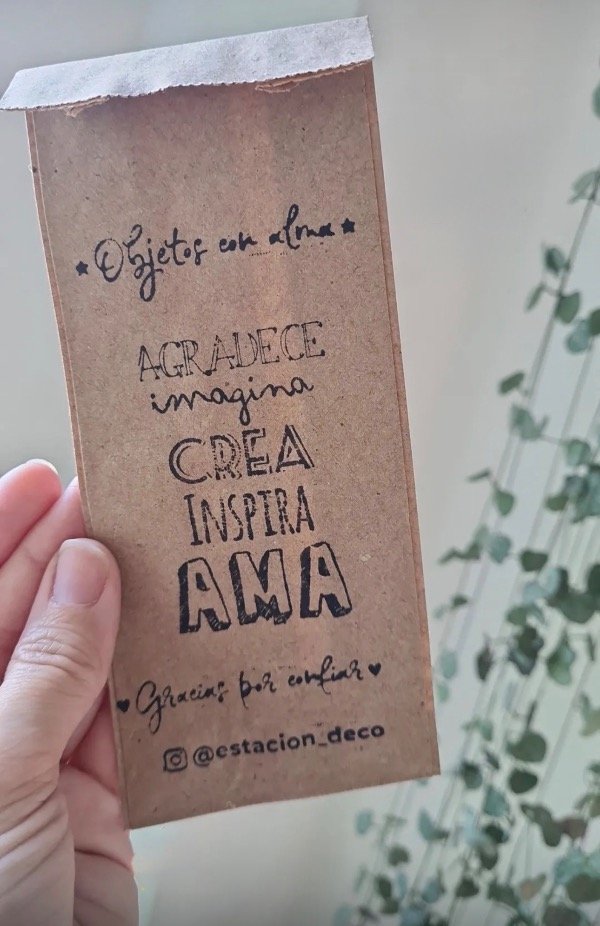 Objetos con alma
AGRADECE
imagina
CREA
INSPIRA
AMA
Gracias por confiar
@estacion_deco